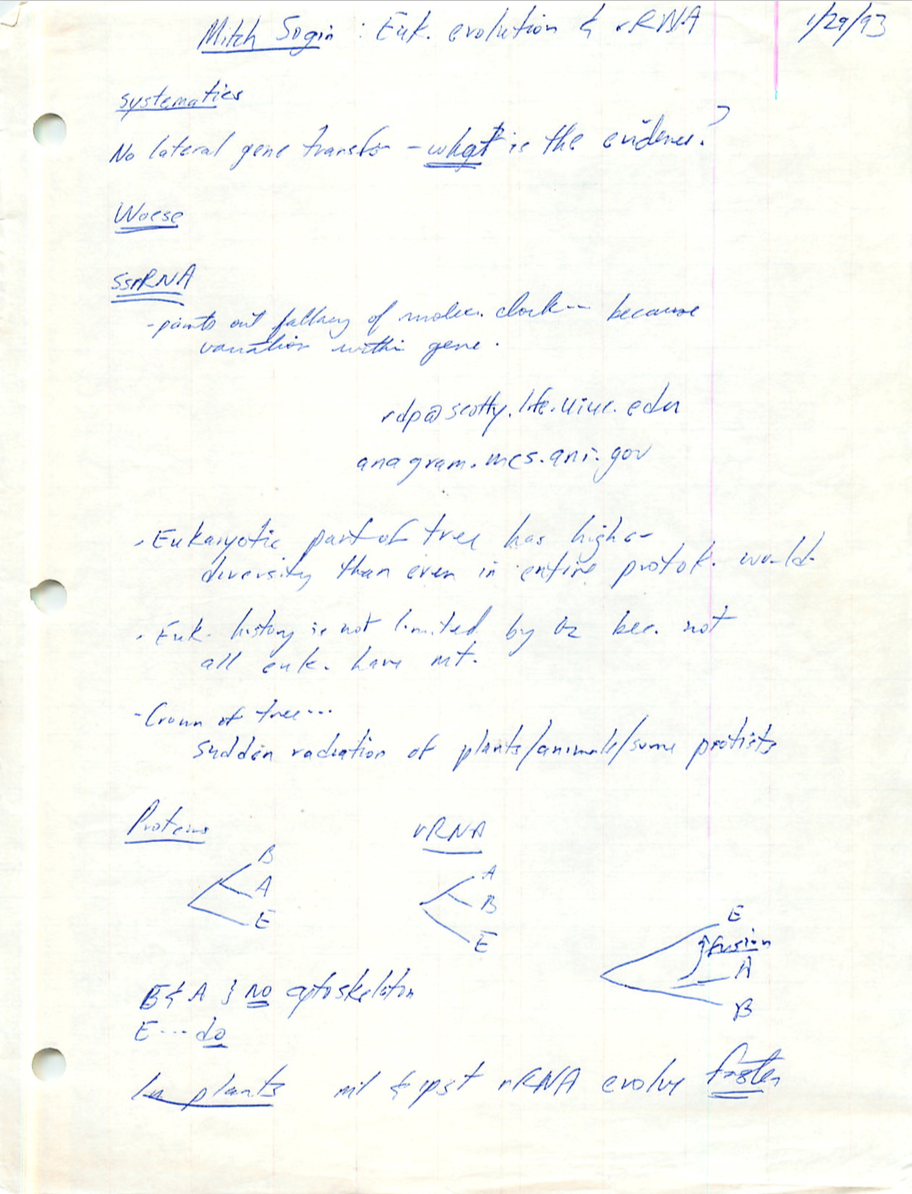 Mitch Sogin : Euk. evolution & rRNA 1/29/93
systematics
No lateral gene transfer - what is the evidence?
Woese
SsrRNA
- points out fallacy of molec. clock -- because
variation within gene.
rdp@scotty.life.uiuc.edu
anagram.mcs.anl.gov
. Eukaryotic part of tree has higher
diversity than even in entire protok. world.
. Euk. history is not limited by O2 bec. not
all euk. have mt.
- Crown of tree...
sudden radiation of plants/animals/some protists
Proteins rRNA
B A
A B
E E
E
fusion
A
B
B & A } no cytoskeleton
E ... do
In plants mt & cpst rRNA evolve faster